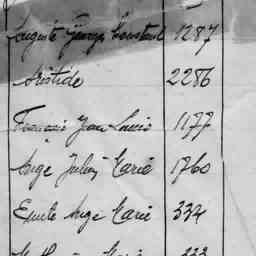 Auguste Georges Constant 1287
Aristide 2286
François Jean Louis 1177
Ange Julien Marie 1760
Emile Ange Marie 334
Marie 333